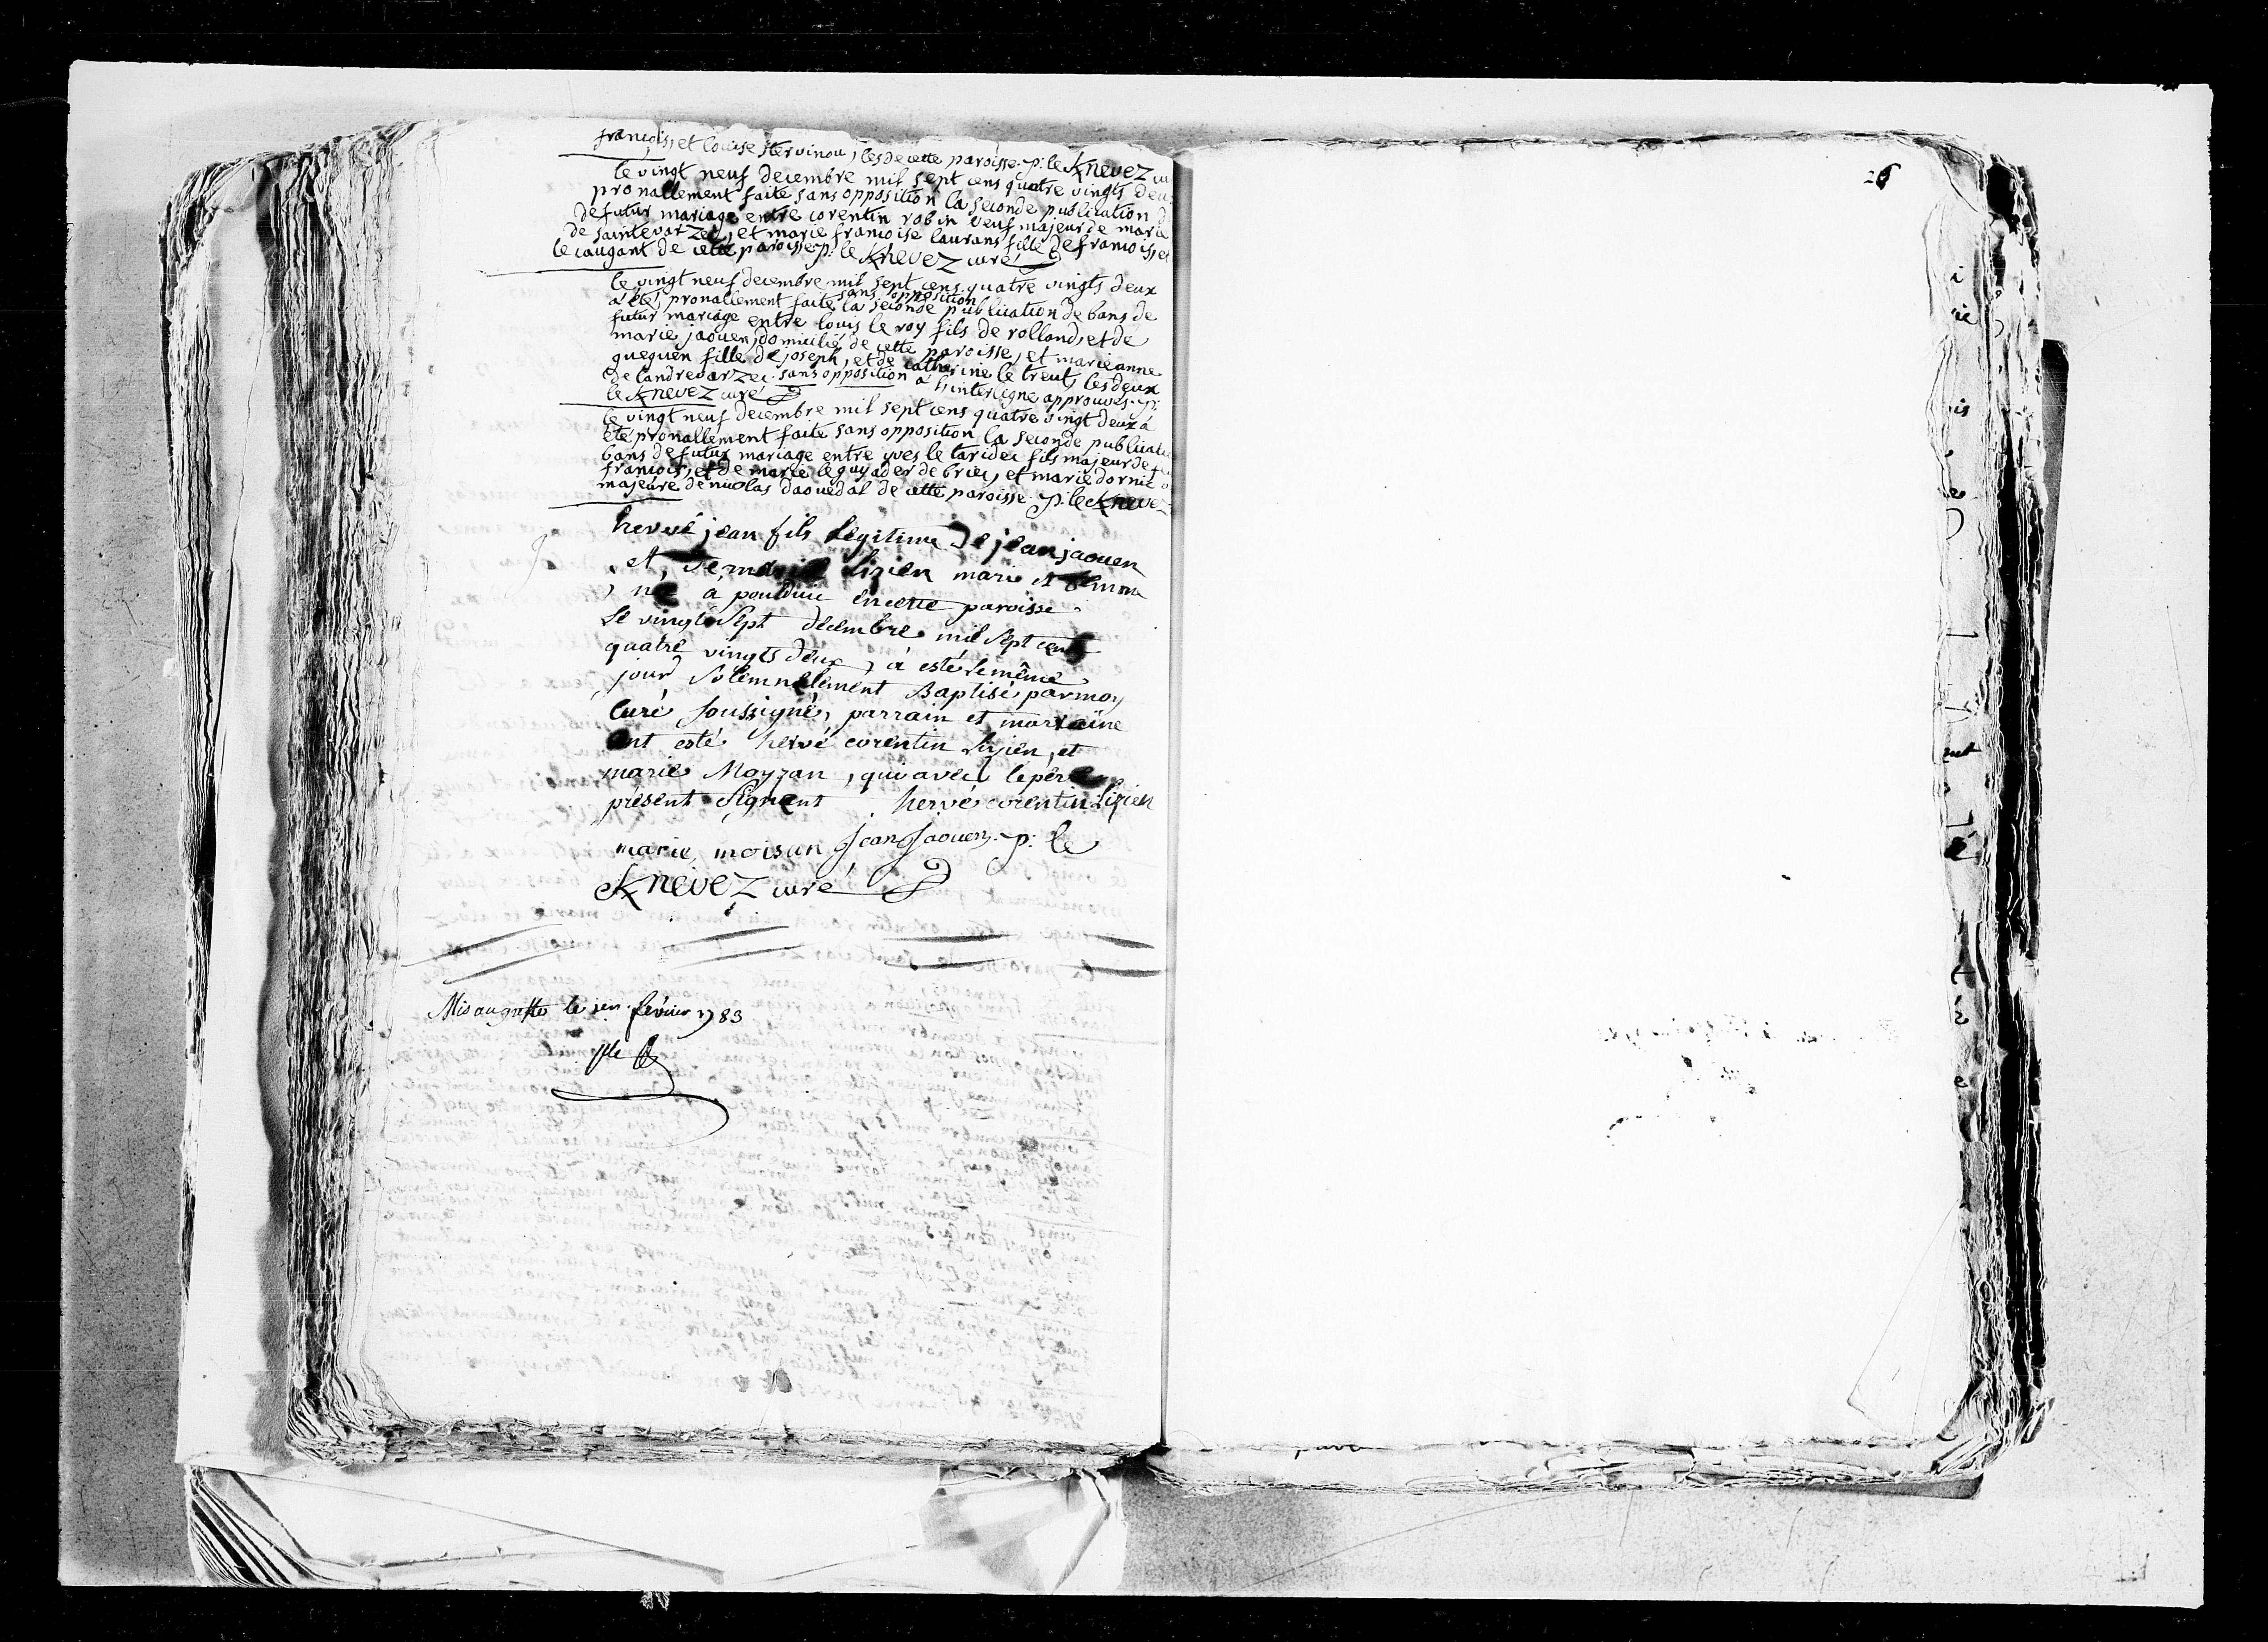 françois, et louise Hervinou, les de cette paroisse. p: le Knevez cu
le vingt neuf decembre mil sept cens quatre vingts deu
pronallement faite sans opposition la seconde publication d
de futur mariage entre corentin robin veuf majeur de marie
de saintevarzec, et marie françoise laurans fille de françois, et
le caugant de cette paroisse p: le Knevez curé
le vingt neuf decembre mil sept cens quatre vingts deux
a été pronallement faite sans opposition la seconde publication de bans de
futur mariage entre louis le roy fils de rolland, et de
marie jaouen, domicilié de cette paroisse, et marieanne
queguen fille de joseph, et de catherine le treut, les deux
de landrevarzec. sans opposition à l'interligne approuvés. p:
le Knevez curé
le vingt neuf decembre mil sept cens quatre vingt deux à
été pronallement faite sans opposition la seconde publicatio
bans de futur mariage entre yves le taridec fils majeur de
françois, et de marie le guyader de briec, et marie dornic
majeure de nicolas daouedal de cette paroisse. p: le Knevez
hervé jean fils Legitime De jean jaouen
et de marie Lizien marie et femme
né a poulduic en cette paroisse
Le vingt Sept decembre mil Sept cent
quatre vingts deux, a esté le même
jour Solemnelement Baptisé par moy
Curé Soussigné, parrain et marraine
ont esté hervé corentin Lizien, et
marie Moyzan, qui avec le père
présent Signent hervé corentin Lizien
marie moisan Jean Jaouen. p: le
Knevez curé
Mis au greffe le 1er. février 1783
26